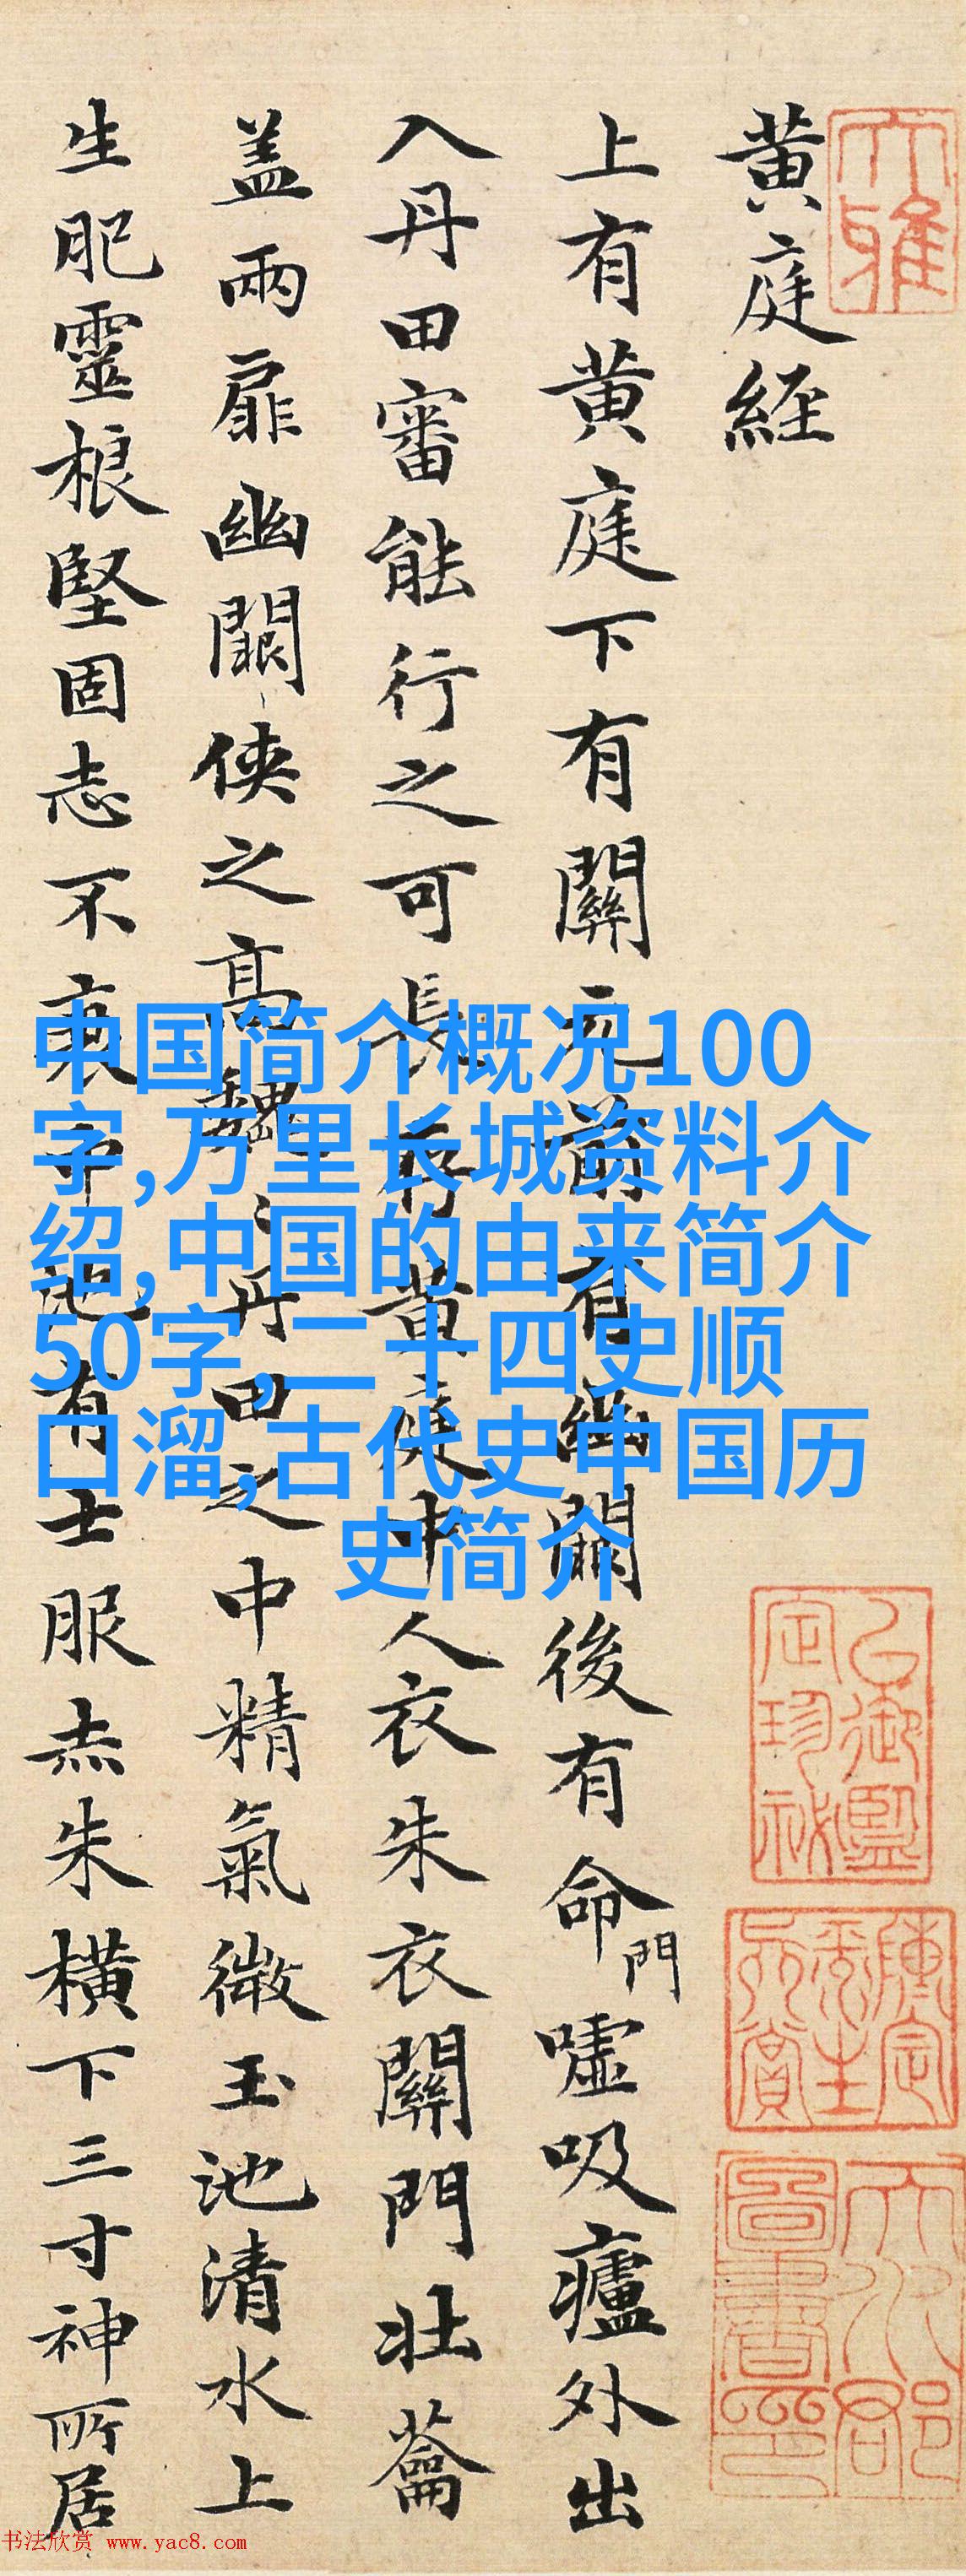 黄庭経
上有黄庭下有關元前有幽闕後有命門嘘吸廬外出
入丹田審能行之可長存黄庭中人衣朱衣關門壯蘥
盖兩扉幽闕侠之髙巍丹田之中精氣微玉池清水上
生肥靈根堅固志不衰中池有士服赤朱横下三寸神所居
中国简介概况100
字,万里长城资料介
绍,中国的由来简介
50字,二十四史顺
口溜,古代史中国历
史简介
大雅
书法欣赏 www.yac8.com